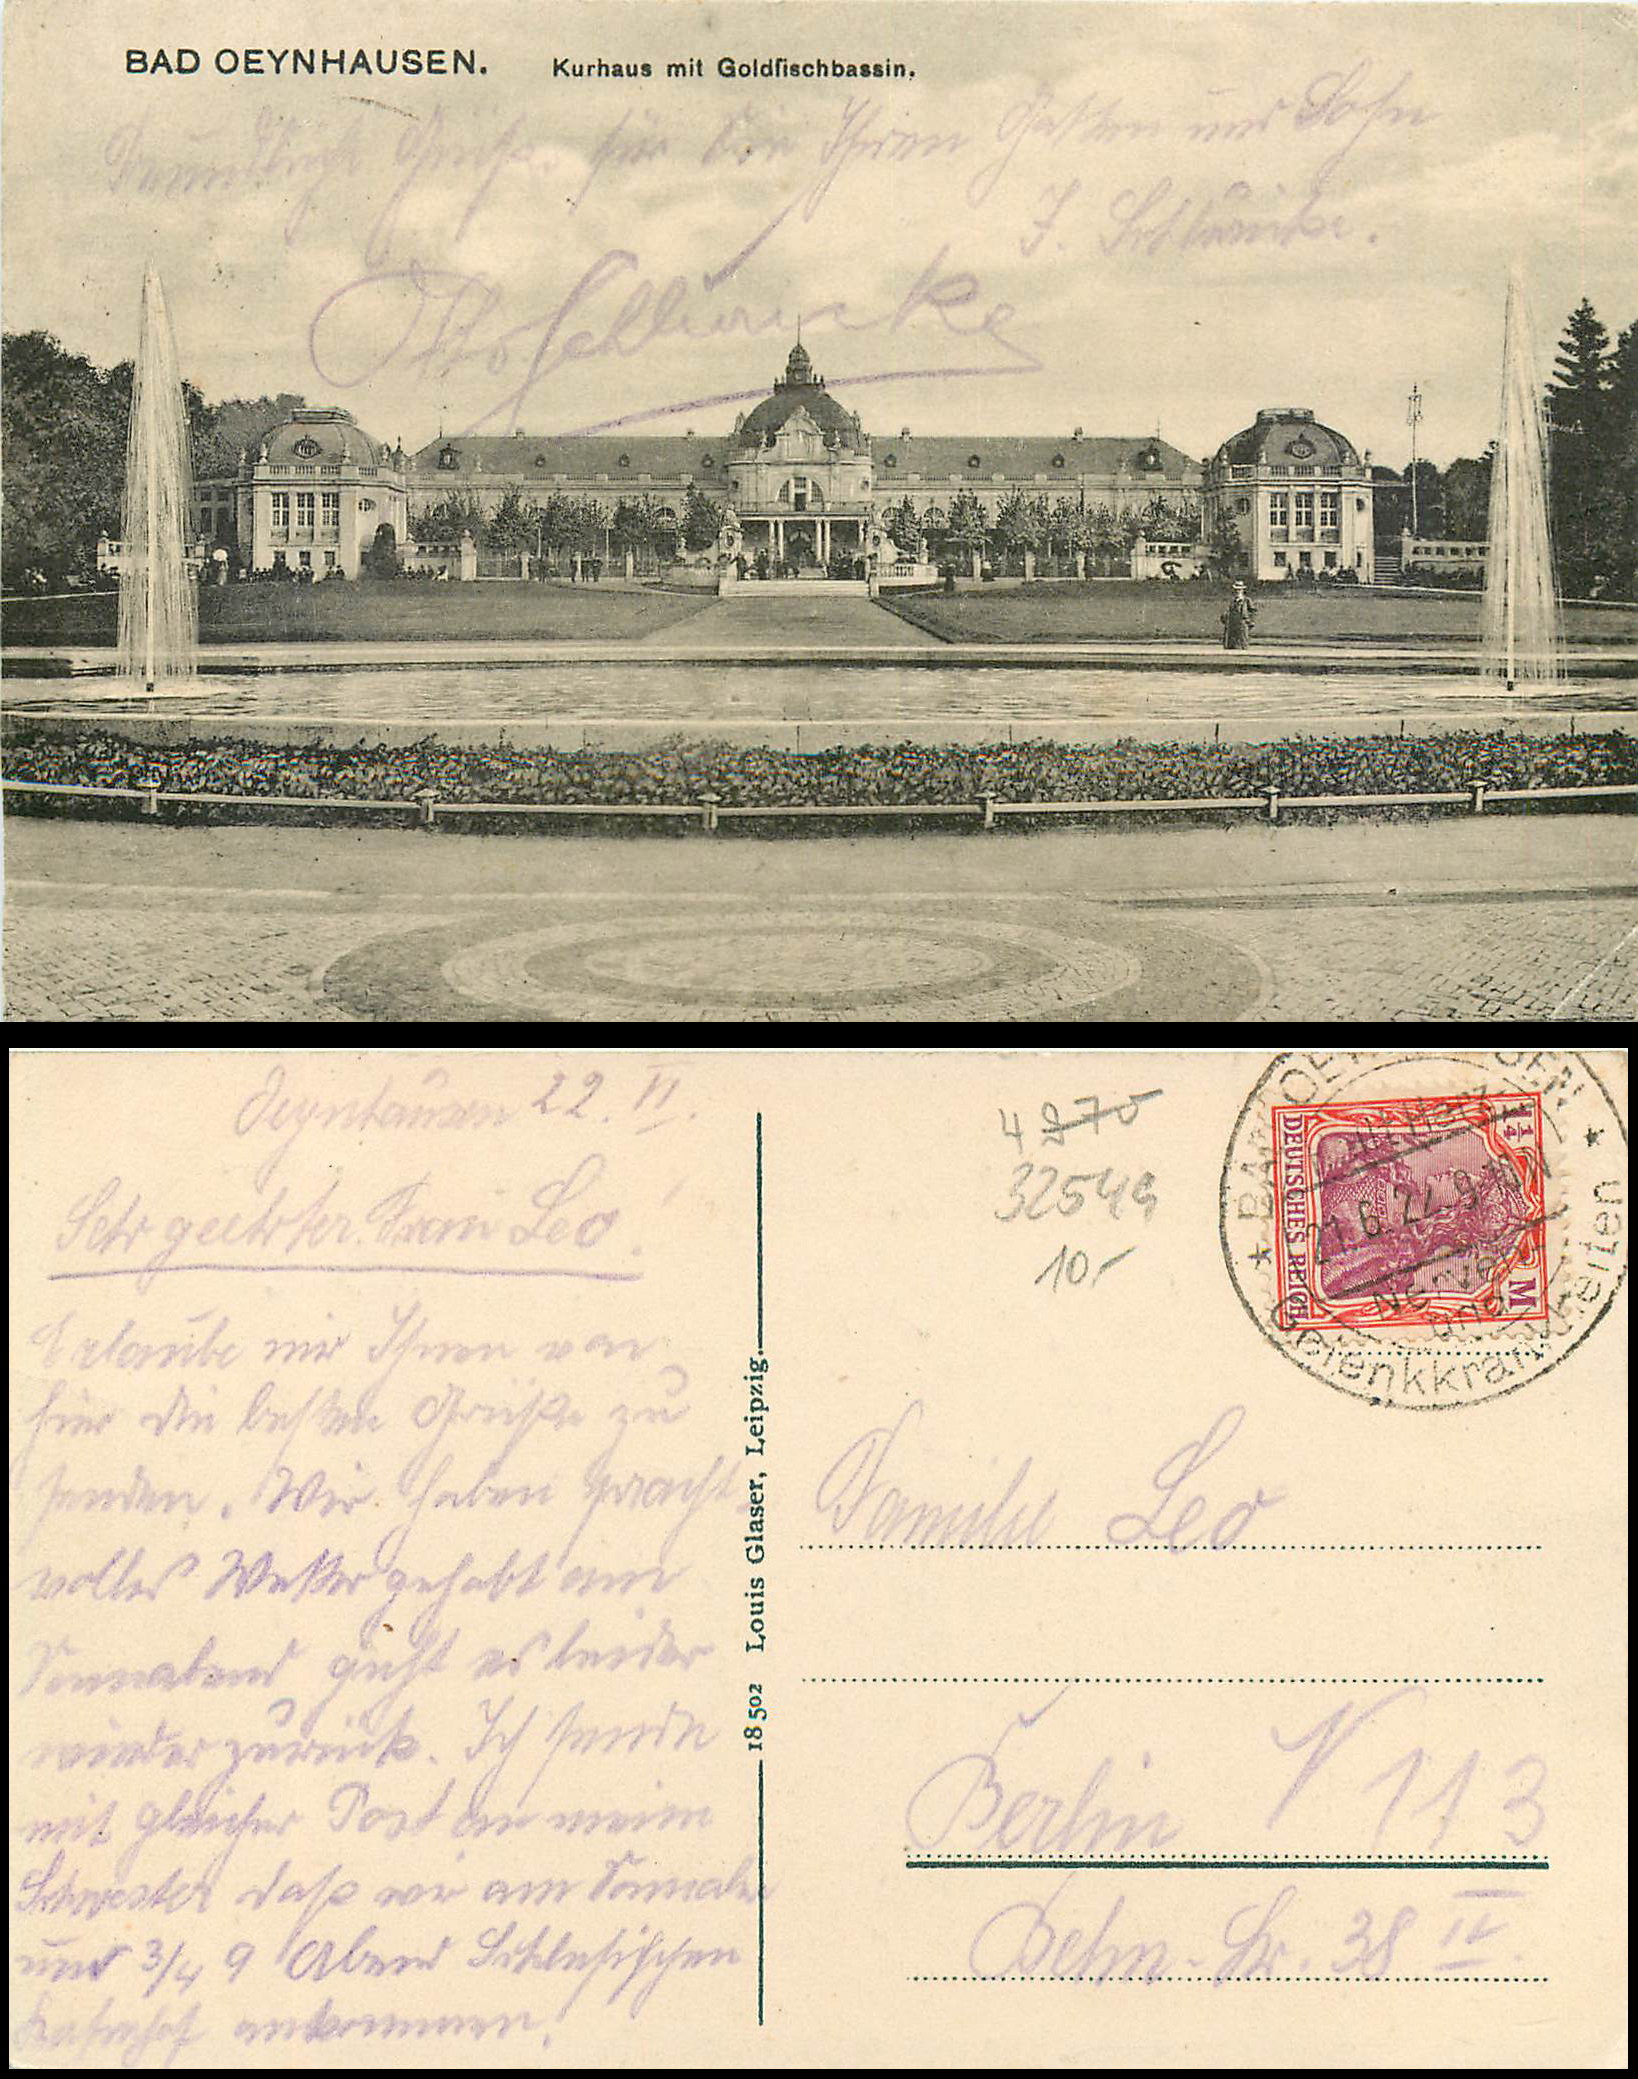 BAD OEYNHAUSEN. Kurhaus mit Goldfischbassin.
Freundliche Grüße für Sie Ihren Gatten und Sohn
F. Schluricke.
Otto Schluricke
Oeynhausen 22. VI.
Sehr geehrter Frau Leo!
Erlaube mir Ihnen von
hier die besten Grüße zu
senden. Wir haben pracht-
volles Wetter gehabt am
Sonnabend geht es leider
wieder zurück. Ich sende
mit gleicher Post an meine
Schwester daß wir am Sonnabend
und 3/4 9 Abend Schlesischen
Bahnhof ankommen!
18502 Louis Glaser, Leipzig.
4 270
32549
10,-
BAD OEYNHAUSEN
hilft Herz-
21.6.22.9-10N
Nerven-
und
Gelenkkrankheiten
DEUTSCHES REICH
1 1/4 M
Familie Leo
Berlin N 113
Behm-Str. 38 IV.